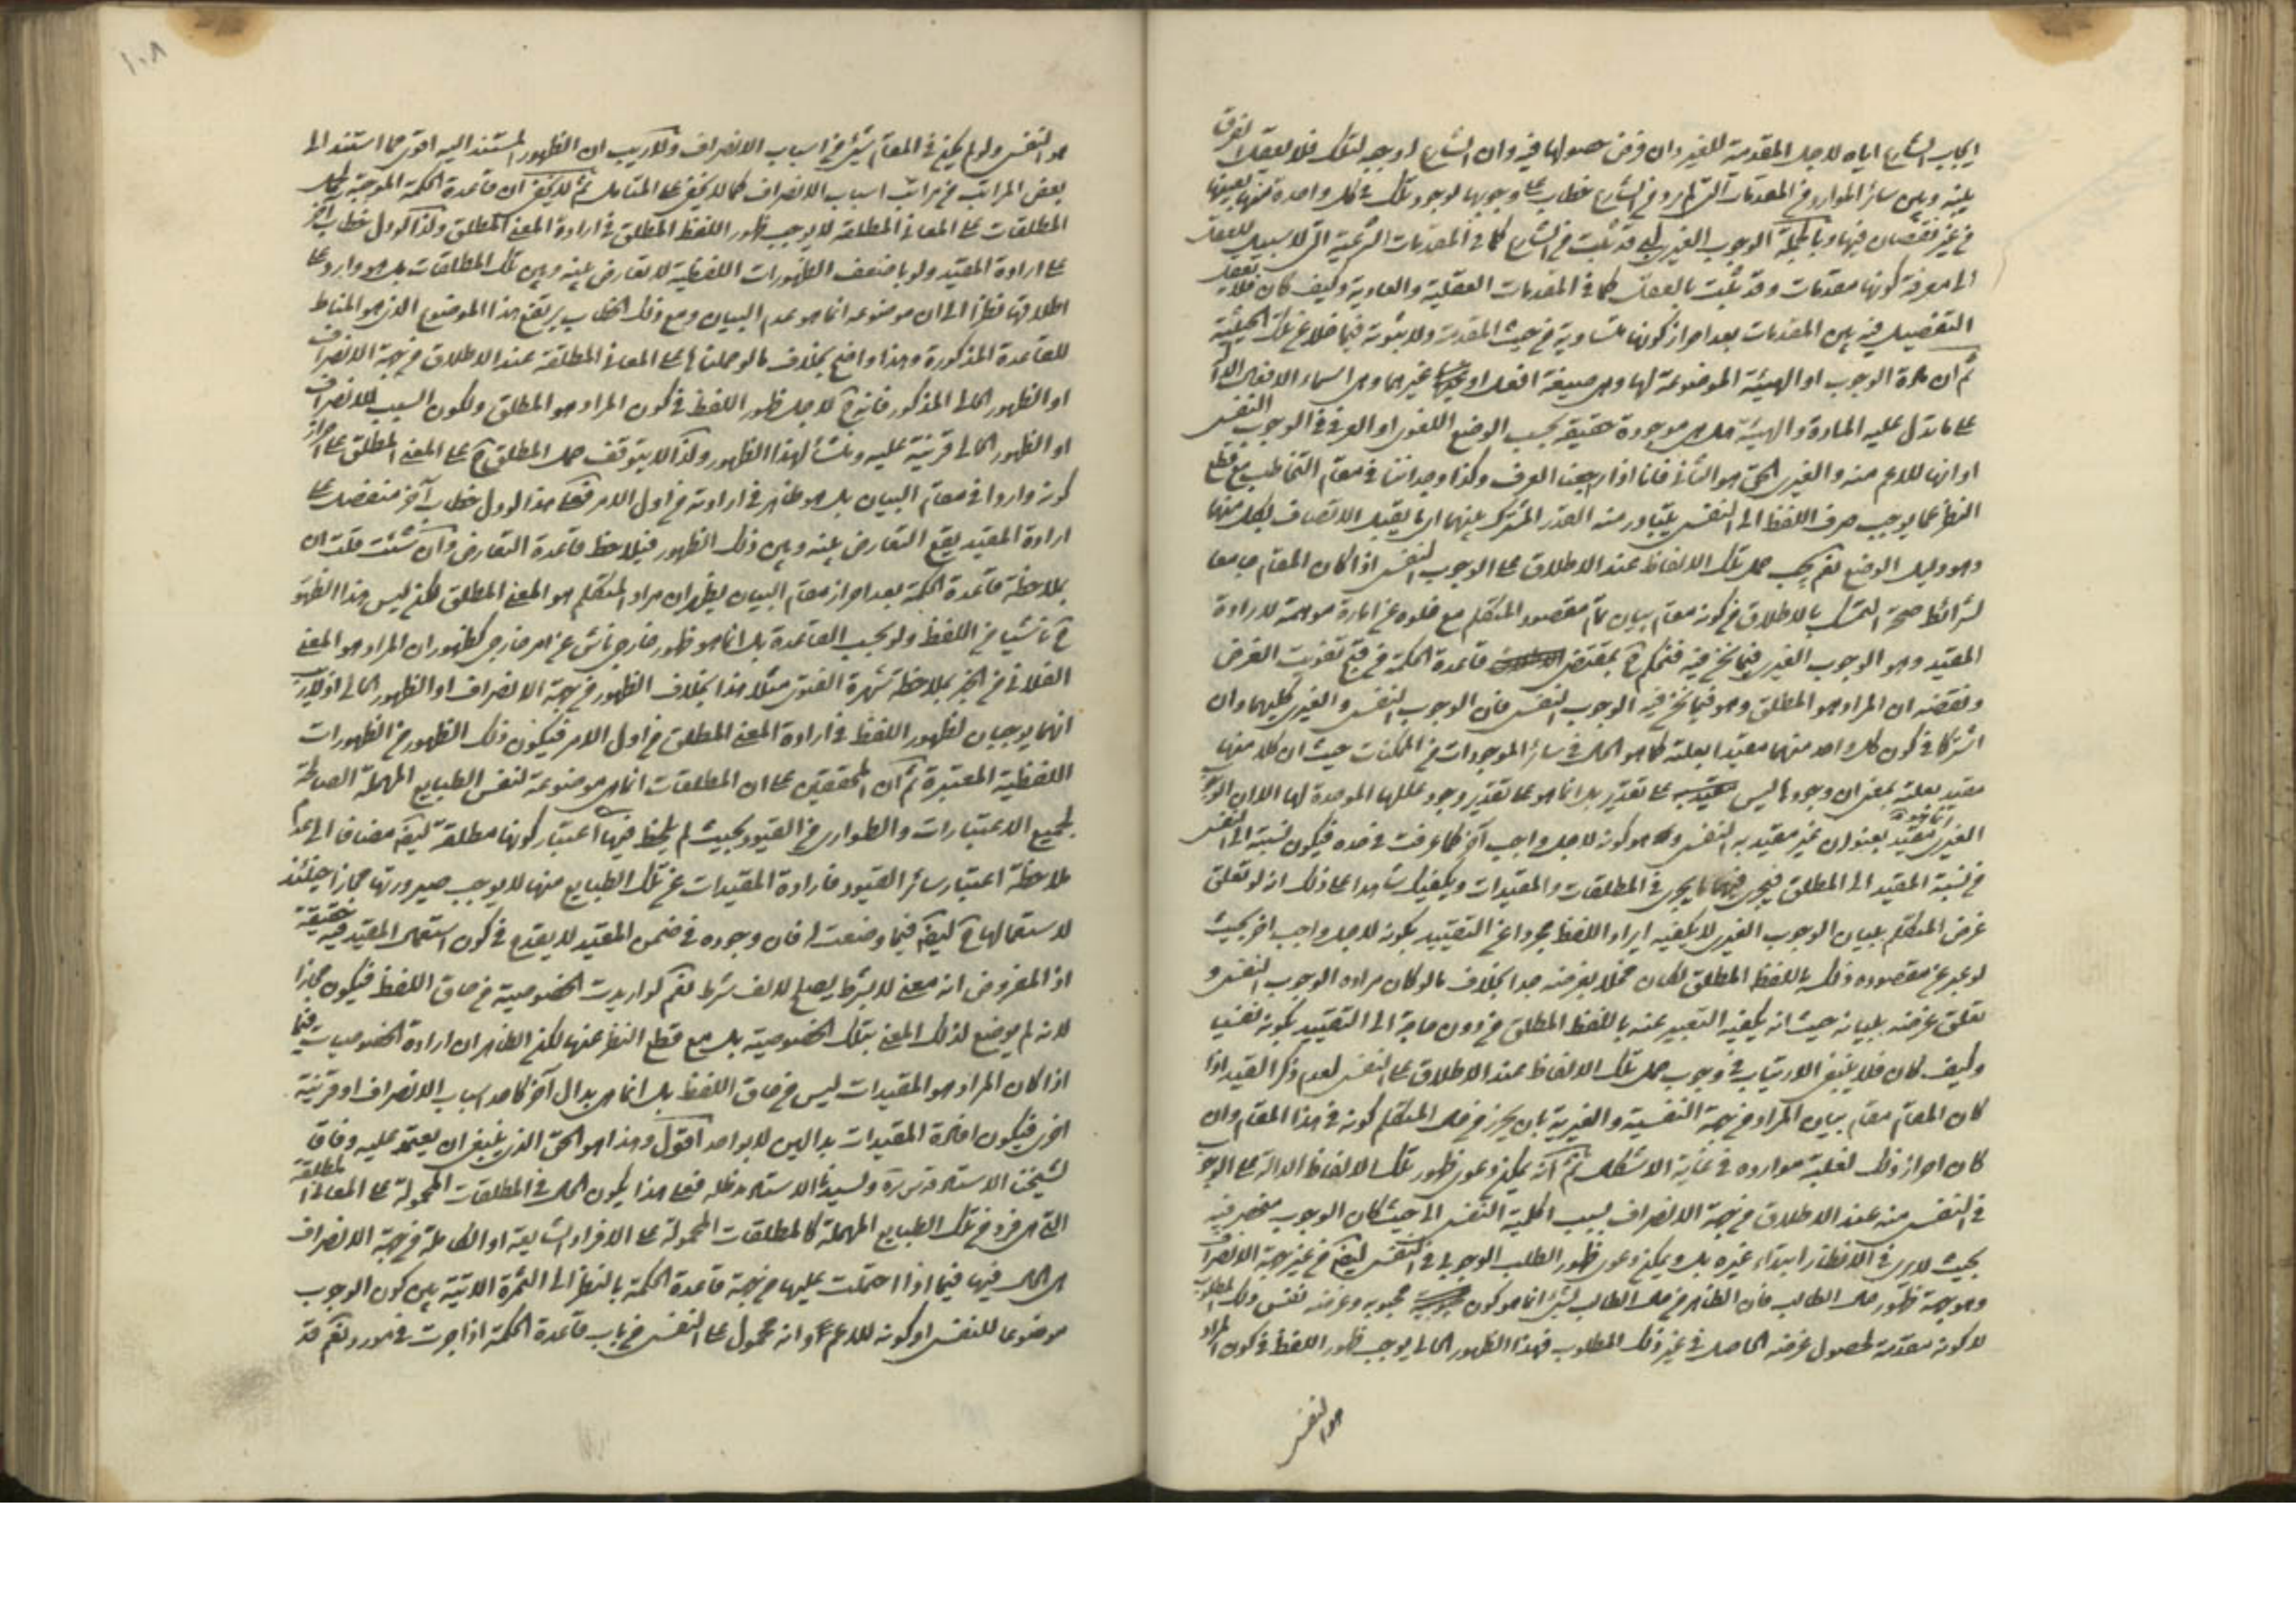 ايجاب الشارع اياه لاجل المقدمية للغير وان فرض حصولها فيه وان الشارع اوجبه لتلك فلا يعقل الفرق
بينه وبين سائر الموارد من المقدمات التى لم يرد من الشارع خطاب على وجوبها لوجود تلك فى كل واحدة منها بعينها
من غير نقصان فيها وبالجملة الوجوب الغيرى قد يثبت من الشارع كما فى المقدمات الشرعية التى لا سبيل للعقل
الى معرفة كونها مقدمات وقد يثبت بالعقل كما فى المقدمات العقلية والعادية وكيف كان فلا يعقل
التفصيل فيه بين المقدمات بعد احراز كونها متساوية من حيث المقدمية ولا بثبوته فيما خلا عن تلك الحيثية
ثم ان مادة الوجوب او الهيئة الموضوعة لها وهى صيغة افعل او غيرهما وهى اسماء الافعال
على ما تدل عليه المادة والهيئة هل هى موجودة حقيقة بحسب الوضع اللغوى او العرفى فى الوجوب النفسى
او انها للاعم منه والغيرى الحق هو الثانى فانا اذا راجعنا العرف وكذا وجداننا فى مقام التخاطب مع قطع
النظر عما يوجب صرف اللفظ الى النفسى يتبادر منه القدر المشترك بينهما اى ما يقبل الاتصاف بكل منهما
وهو دليل الوضع نعم يجب حمل تلك الالفاظ عند الاطلاق على الوجوب النفسى اذا كان المقام جامعا
لشرائط صحة التمسك بالاطلاق من كونه مقام بيان تمام مقصود المتكلم مع خلوه عن امارة موهمة لارادة
المقيد وهو الوجوب الغيرى فيما نحن فيه فنحكم ح بمقتضى قاعدة الحكمة من قبح تفويت الغرض
ونقضه ان المراد هو المطلق وهو فيما نحن فيه الوجوب النفسى فان الوجوب النفسى والغيرى كليهما وان
اشتركا فى كون كل واحد منهما مقيدا بعلته كما هو الحال فى سائر الموجودات من الممكنات حيث ان كلا منها
مقيد بعلته بمعنى ان وجودها ليس على تقدير بل انما هو على تقدير وجود عللها الموجدة لها الا ان الوجوب
الغيرى مقيد بعنوان غير مقيد به النفسى وهو كونه لاجل واجب آخر كما عرفت فى حده فيكون نسبته الى النفسى
من نسبة المقيد الى المطلق فيجرى فيهما ما يجرى فى المطلقات والمقيدات ويكفيك شاهدا على ذلك انه لو تعلق
غرض المتكلم ببيان الوجوب الغيرى لا يكفيه ايراد اللفظ مجردا عن التقييد بكونه لاجل واجب اخر بحيث
لو عبر عن مقصوده ذلك باللفظ المطلق لكان مخلا بغرضه جدا بخلاف ما لو كان مراده الوجوب النفسى و
تعلق غرضه ببيانه حيث انه يكفيه التعبير عنه باللفظ المطلق من دون حاجة الى التقييد بكونه نفسيا
وكيف كان فلا ينبغى الارتياب فى وجوب حمل تلك الالفاظ عند الاطلاق على النفسى لعدم ذكر القيد اذا
كان المقام مقام بيان المراد من جهة النفسية والغيرية بان يحرز من حال المتكلم كونه فى هذا المقام وان
كان احراز ذلك لغلبة موارده فى غاية الاشكال ثم انه يمكن دعوى ظهور تلك الالفاظ الدالة على الوجوب
فى النفسى منه عند الاطلاق من جهة الانصراف بسبب اكملية النفسى الى حيث كان الوجوب منحصر فيه
بحيث لا يرى فى الانظار ابتداء غيره بل ويمكن دعوى ظهور الطلب الوجوبى فى النفسى ايضا من غير جهة الانصراف
وهو جهة ظهور حال الطالب فان الظاهر من حال الطالب لشئ انما هو كون محبوبه وغرضه نفس ذلك المطلوب
لا كونه مقدمة لحصول غرضه الحاصل فى غير ذلك المطلوب فهذا الظهور الحالى يوجب ظهور اللفظ فى كون المراد
هو النفسى
١٠٨
هو النفسى ولو لم يكن فى المقام شئ من اسباب الانصراف ولا ريب ان الظهور المستند اليه اقوى مما استند الى
بعض المراتب من مراتب اسباب الانصراف كما لا يخفى على المتامل ثم لا يخفى ان قاعدة الحكمة الموجبة لحمل
المطلقات على المعانى المطلقة لا يوجب ظهور اللفظ المطلق فى ارادة المعنى المطلق ولذا لو دل خطاب اخر
على ارادة المقيد ولو باضعف الظهورات اللفظية لا تعارض بينه وبين تلك المطلقات بل هو وارد على
اطلاقها نظرا الى ان موضوعه انما هو عدم البيان ومع ذلك الخطاب يرتفع هذا الموضوع الذى هو المناط
للقاعدة المذكورة وهذا واضح بخلاف ما لو حملناها على المعانى المطلقة عند الاطلاق من جهة الانصراف
او الظهور الحالى المذكور فانه ح لاجل ظهور اللفظ فى كون المراد هو المطلق ولكون السبب للانصراف
او الظهور الحالى قرينة عليه ومنشأ لهذا الظهور ولذا لا يتوقف حمل المطلق ح على المعنى المطلق على احراز
كونه واردا فى مقام البيان بل هو ظاهر فى ارادته من اول الامر فعلى هذا لو دل خطاب آخر منفصل على
ارادة المقيد يقع التعارض بينه وبين ذلك الظهور فيلاحظ قاعدة التعارض وان شئت قلت ان
بملاحظة قاعدة الحكمة بعد احراز مقام البيان يظهر ان مراد المتكلم هو المعنى المطلق لكن ليس هذا الظهور
ح ناشيا من اللفظ ولو بحسب القاعدة بل انما هو ظهور خارجى ناش عن امر خارجى كظهور ان المراد هو المعنى
الفلانى من الخبر بملاحظة شهرة الفتوى مثلا هذا بخلاف الظهور من جهة الانصراف او الظهور الحالى اذ لا ريب
انهما يوجبان لظهور اللفظ فى ارادة المعنى المطلق من اول الامر فيكون ذلك الظهور من الظهورات
اللفظية المعتبرة ثم ان المحققين على ان المطلقات انما هى موضوعة لنفس الطبايع المهملة الصالحة
لجميع الاعتبارات والطوارى من القيود بحيث لم يلحظ فيها اعتبار كونها مطلقة ايضا مضافا الى عدم
ملاحظة اعتبار سائر القيود فارادة المقيدات عن تلك الطبايع منها لا يوجب صيرورتها مجازا حينئذ
لاستعمالها ح ايضا فيما وضعت له فان وجوده فى ضمن المقيد لا يقدح فى كون استعمال المقيد فيه حقيقة
اذ المفروض انه معنى لا بشرط يصلح لالف شرط نعم لو اريدت الخصوصية من حاق اللفظ فيكون مجازا
لانه لم يوضع لذلك المعنى بتلك الخصوصية بل مع قطع النظر عنها لكن الظاهر ان ارادة الخصوصيات فيما
اذا كان المراد هو المقيدات ليس من حاق اللفظ بل انما هى بدال آخر كاحد اسباب الانصراف او قرينة
اخرى فيكون افادة المقيدات بدالين لا بواحد اقول وهذا هو الحق الذى ينبغى ان يعتمد عليه وفاقا
لشيخنا الاستاد قدس سره ولسيدنا الاستاد مد ظله فعلى هذا يكون الحال فى المطلقات المحمولة على المعانى المطلقة
التى هى فرد من تلك الطبايع المهملة كالمطلقات المحمولة على الافراد الشايعة او الكاملة من جهة الانصراف
هى الحال فيها فيما اذا احتملت عليها من جهة قاعدة الحكمة بالنظر الى الثمرة الاتية بين كون الوجوب
موضوعا للنفسى او كونه للاعم وانه محمول على النفسى من باب قاعدة الحكمة اذا جرت فى مورد نعم قد